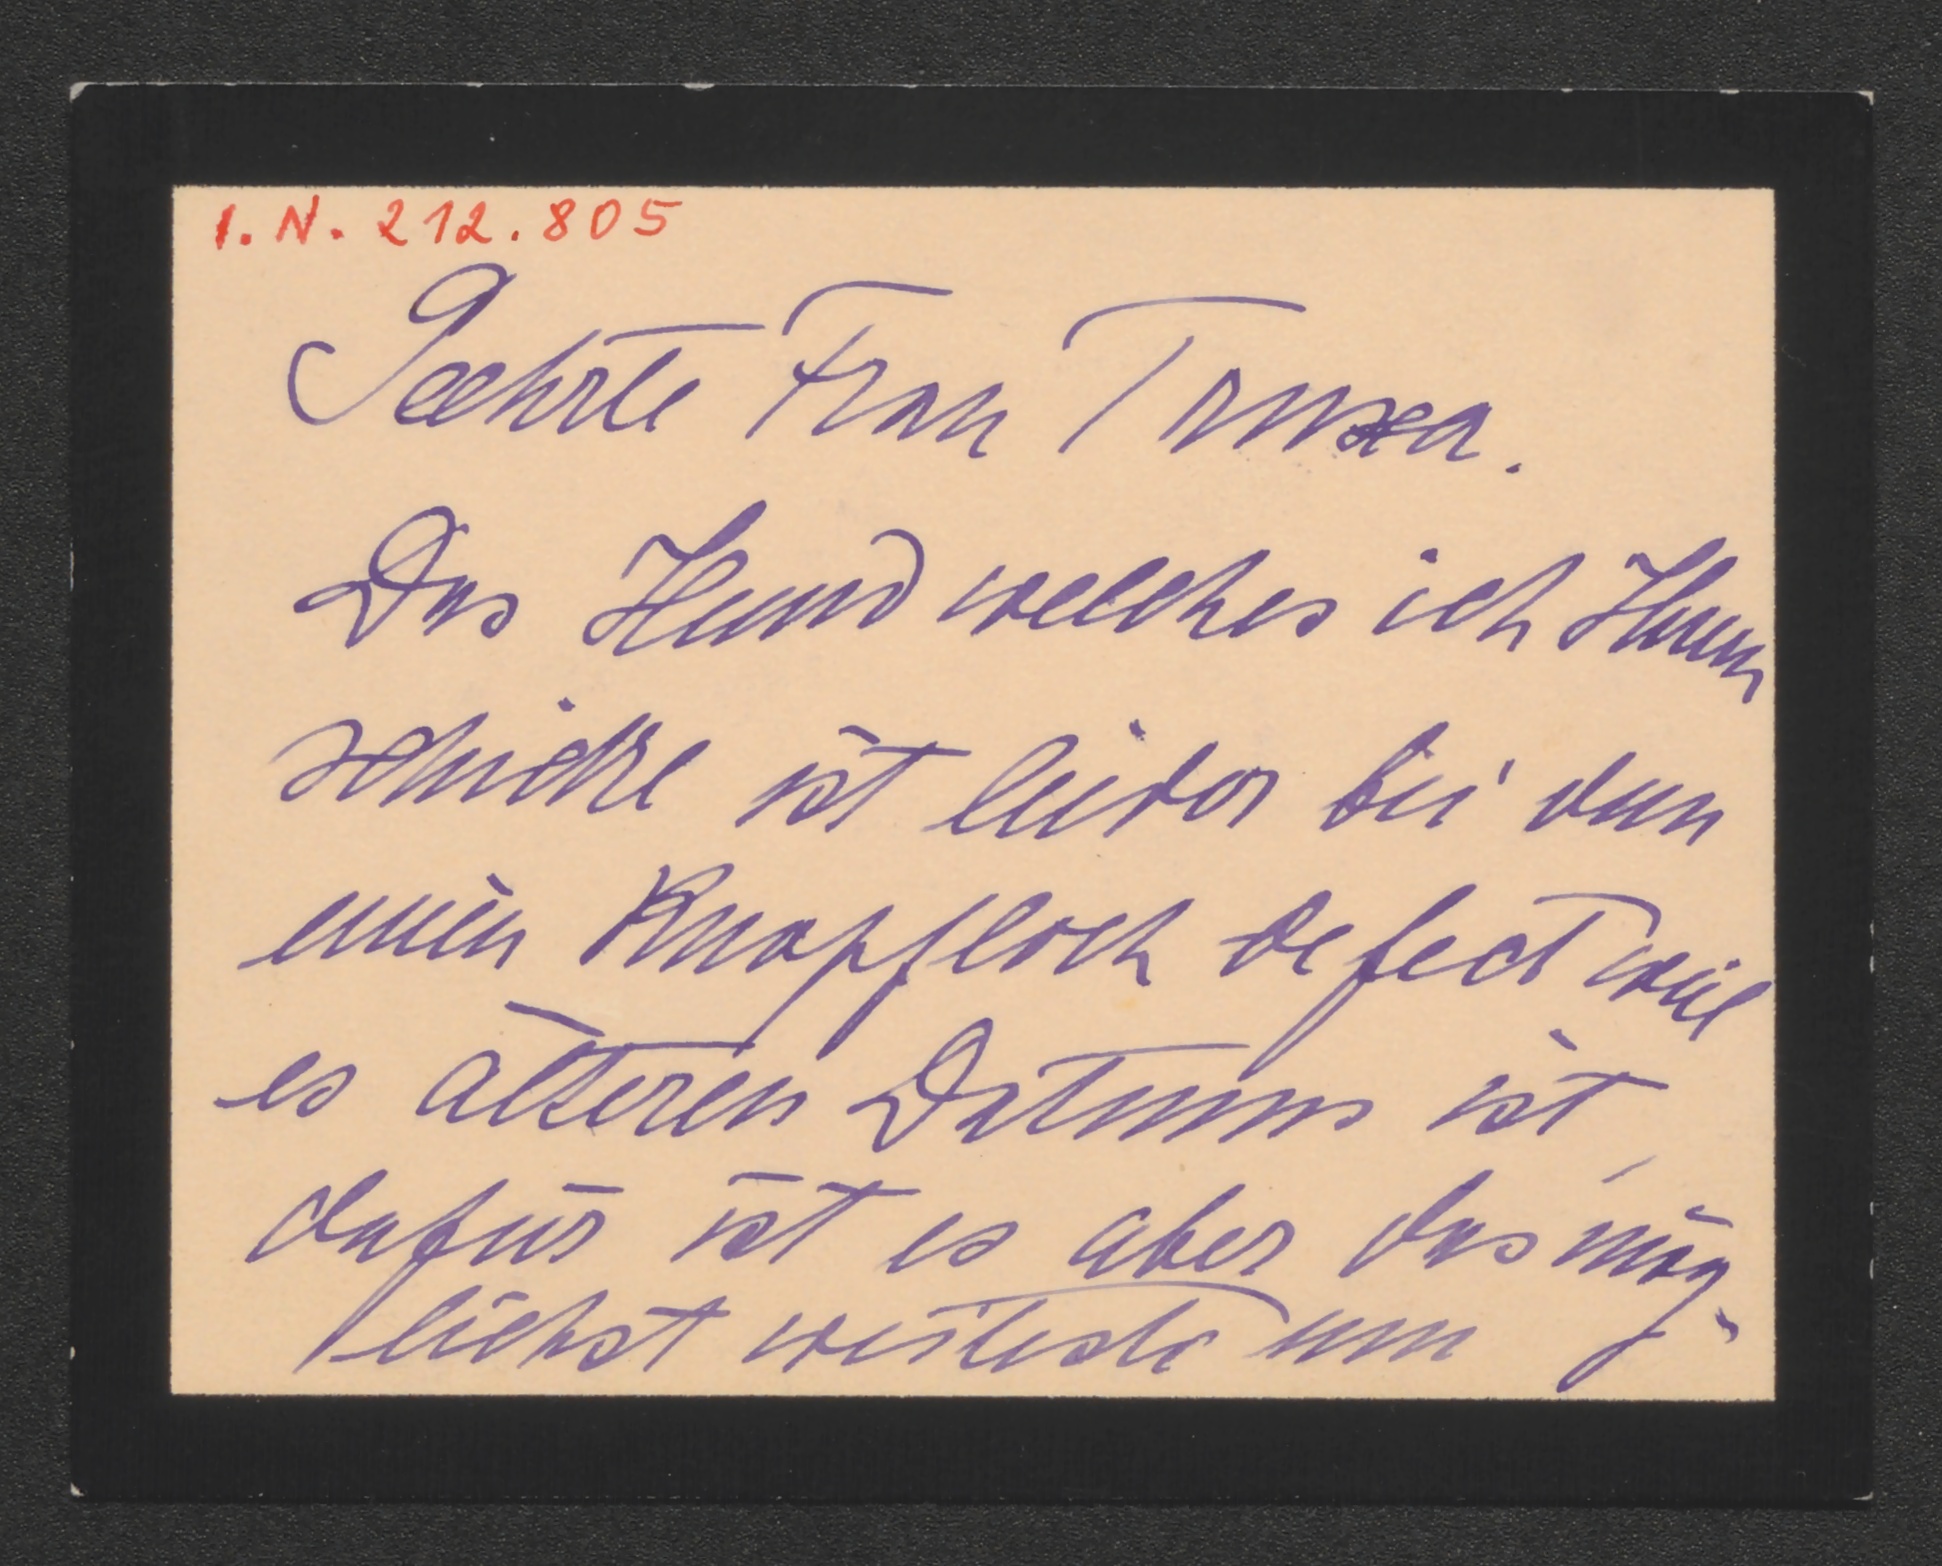 I.N. 212.805
Geehrte Frau Truxa.
Das Hemd welches ich Ihnen
schicke ist leider bei dem
einen Knopfloch defect weil
es älteren Datums ist,
dafür ist es aber das mög-
lichst weiteste um